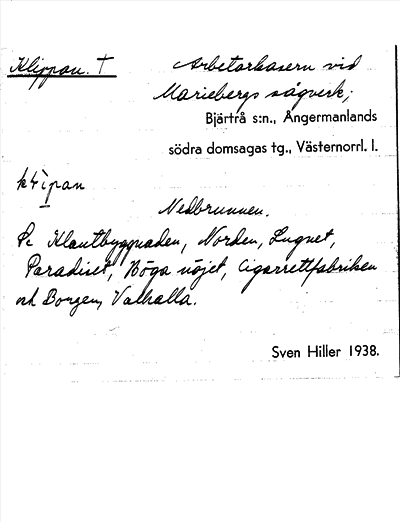 Klippan. †
Arbetarkasern vid
Mariebergs sågverk,
Bjärtrå s:n., Ångermanlands
södra domsagas tg., Västernorrl. l.
Nedbrunnen.
Se Klantbyggnaden, Norden, Lugnet,
Paradiset, Höga nöjet, Cigarrettfabriken
och Borgen, Valhalla.
Sven Hiller 1938.